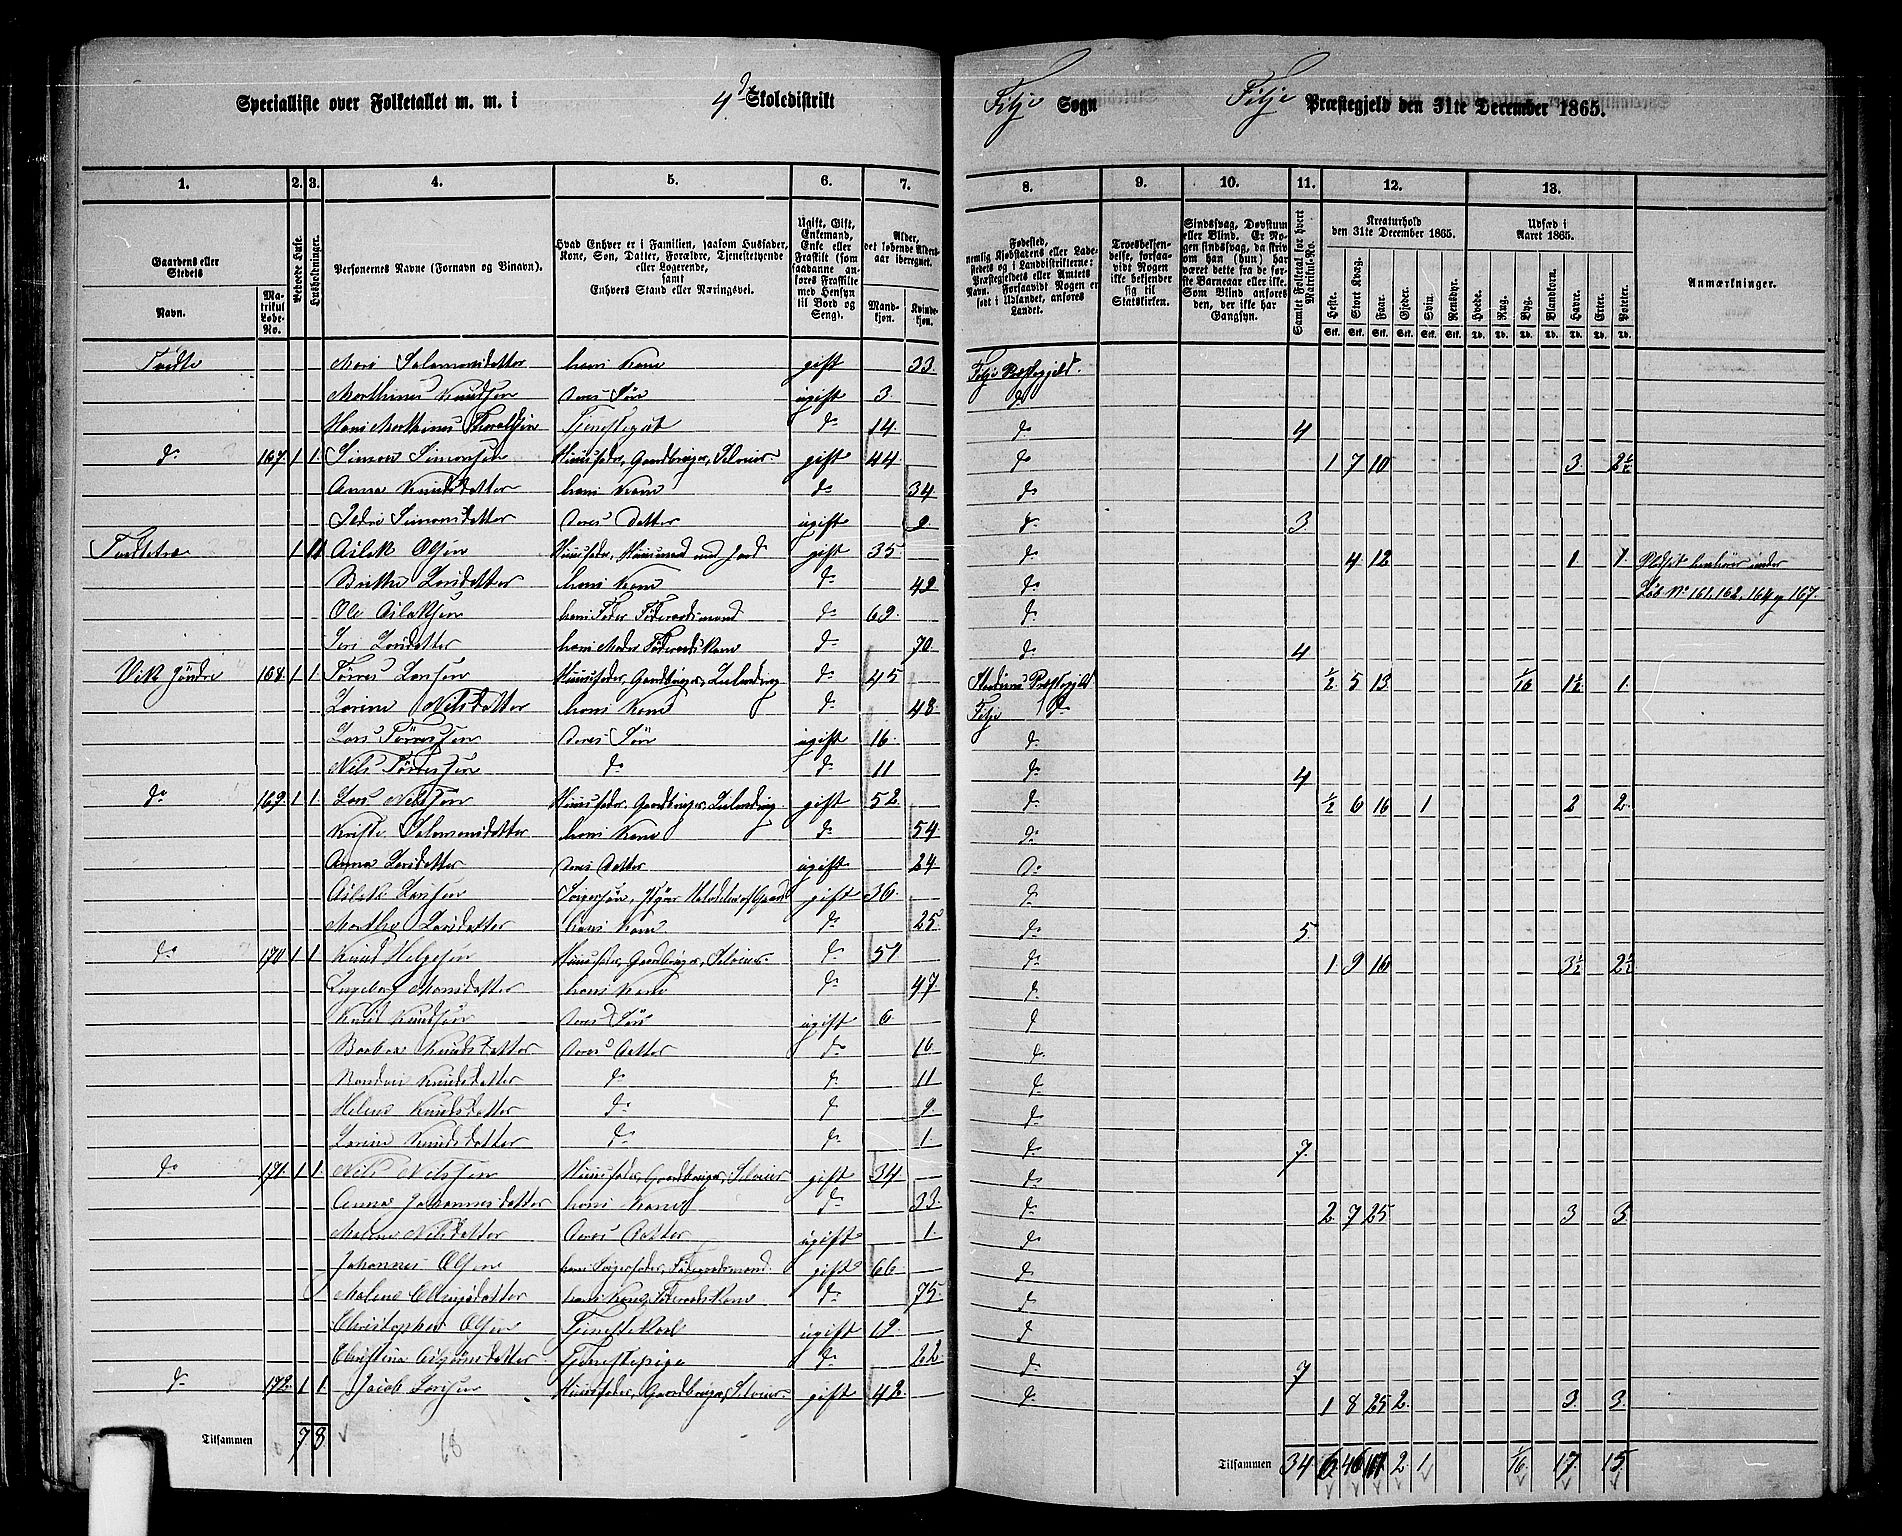 Specialliste over Folketallet m. m. i 4de Skoledistrikt
Fitje Sogn Fitje Præstegjeld den 31te December 1865.
1. 2. 3. 4. 5. 6. 7. 8. 9. 10. 11. 12. 13.
Gaardens eller Stedets
Navn.
Matrikul Løbe-No.
Beboede Huse.
Husholdninger.
Personernes Navne (Fornavn og Binavn).
Hvad Enhver er i Familien, saasom Husfader, Kone, Søn, Datter, Forældre, Tjenestetyende eller Logerende, samt Enhvers Stand eller Næringsvei.
Ugift, Gift, Enkemand, Enke eller Fraskilt (som saadanne anføres Fraskilte med Hensyn til Bord og Seng).
Alder, det løbende Aldersaar iberegnet.
Mandkjøn.
Kvindekjøn.
Fødested, nemlig Kjøbstadens eller Ladestedets og i Landdistrikterne: Præstegjeldets eller Amtets Navn. Forsaavidt Nogen er født i Udlandet, anføres Landet.
Troesbekjendelse, forsaavidt Nogen ikke bekjender sig til Statskirken.
Sindssvag, Døvstum eller Blind. Er Nogen sindssvag, da skriv om han (hun) har været dette fra de første Barneaar eller ikke. Som Blind ansøres den, der ikke har Gangsyn.
Samlet Folketal for hvert Matrikul-No.
Kreaturhold den 31te December 1865.
Heste. Stort Kvæg. Faar. Gjeder. Svin. Rensdyr.
Udsæd i Aaret 1865.
Hvede. Rug. Byg. Blandkorn. Havre. Erter. Poteter.
Anmærkninger.
Salamonsdatter hans Kone gift 33 Fitje Præstegjeld
Marthinus Knudsen deres Søn ugift 3 do
Hans Marthinus do 14 do 4
do 167 1 1 Simon Simonsen Huusfader, Gaardbruger, Selveier gift 44 do 1 7 10 3 2½
Anna Knudsdatter hans Kone do 34 do
Simonsdatter deres Datter ugift 2 do 3
1 1 Aslak Olsen Huusfader, Huusmand med Jord gift 35 do 4 12 1 1 Pladset henhører under
Brithe Larsdatter hans Kone do 42 do Løb No 161, 162, 164 og 167
Ole Aslaksen hans Fader Føderaadsmand do 69 do
Larsdatter hans Moder Føderaadskone do 70 do 4
Vik Søndre 168 1 1 Tørres Larsen Huusfader, Gaardbruger, Leilending do 45 Præstegjeld ½ 5 13 1/16 1½ 1
Nilsdatter hans Kone do 48 Fitje do
Lars Tørresen deres Søn ugift 16 do
Nils Tørresen do do 11 do 4
do 169 1 1 Lars Nilssen Huusfader, Gaardbruger, Leilending gift 52 do ½ 6 16 1 2 2
Salamonsdatter hans Kone do 54 do
Anna Larsdatter deres Datter ugift 24 do
Aslak Larsen gift 36 do
Marthe Larsdatter hans Kone do 25 do 5
do 170 1 1 Knud Helgesen Huusfader, Gaardbruger, Selveier do 51 do 1 9 16 3½ 2½
Ingeborg Monsdatter hans Kone do 47 do
Knud Knudsen deres Søn ugift 6 do
Barbra Knudsdatter deres Datter do 16 do
Knudsdatter do do 11 do
Helene Knudsdatter do do 9 do
Knudsdatter do do 1 do 7
do 171 1 1 Nils Nilssen Huusfader, Gaardbruger, Selveier gift 34 do
Anna Johannesdatter hans Kone do 33 do 2 7 25 3 3
Malene Nilsdatter deres Datter ugift 1 do
Johannes Olsen hans Svigerfader, Føderaadsmand gift 66 do
Malene hans Kone, Føderaadskone do 75 do
Christopher Olsen Tjenestekarl ugift 19 do
Christina Tjenestepige do 22 do 7
do 172 1 1 Jacob Larsen Huusfader, Gaardbruger, Selveier gift 42 do 1 8 25 2 3 3
Tilsammen 7 8 Tilsammen 34 6 46 2 1 1/16 17 15